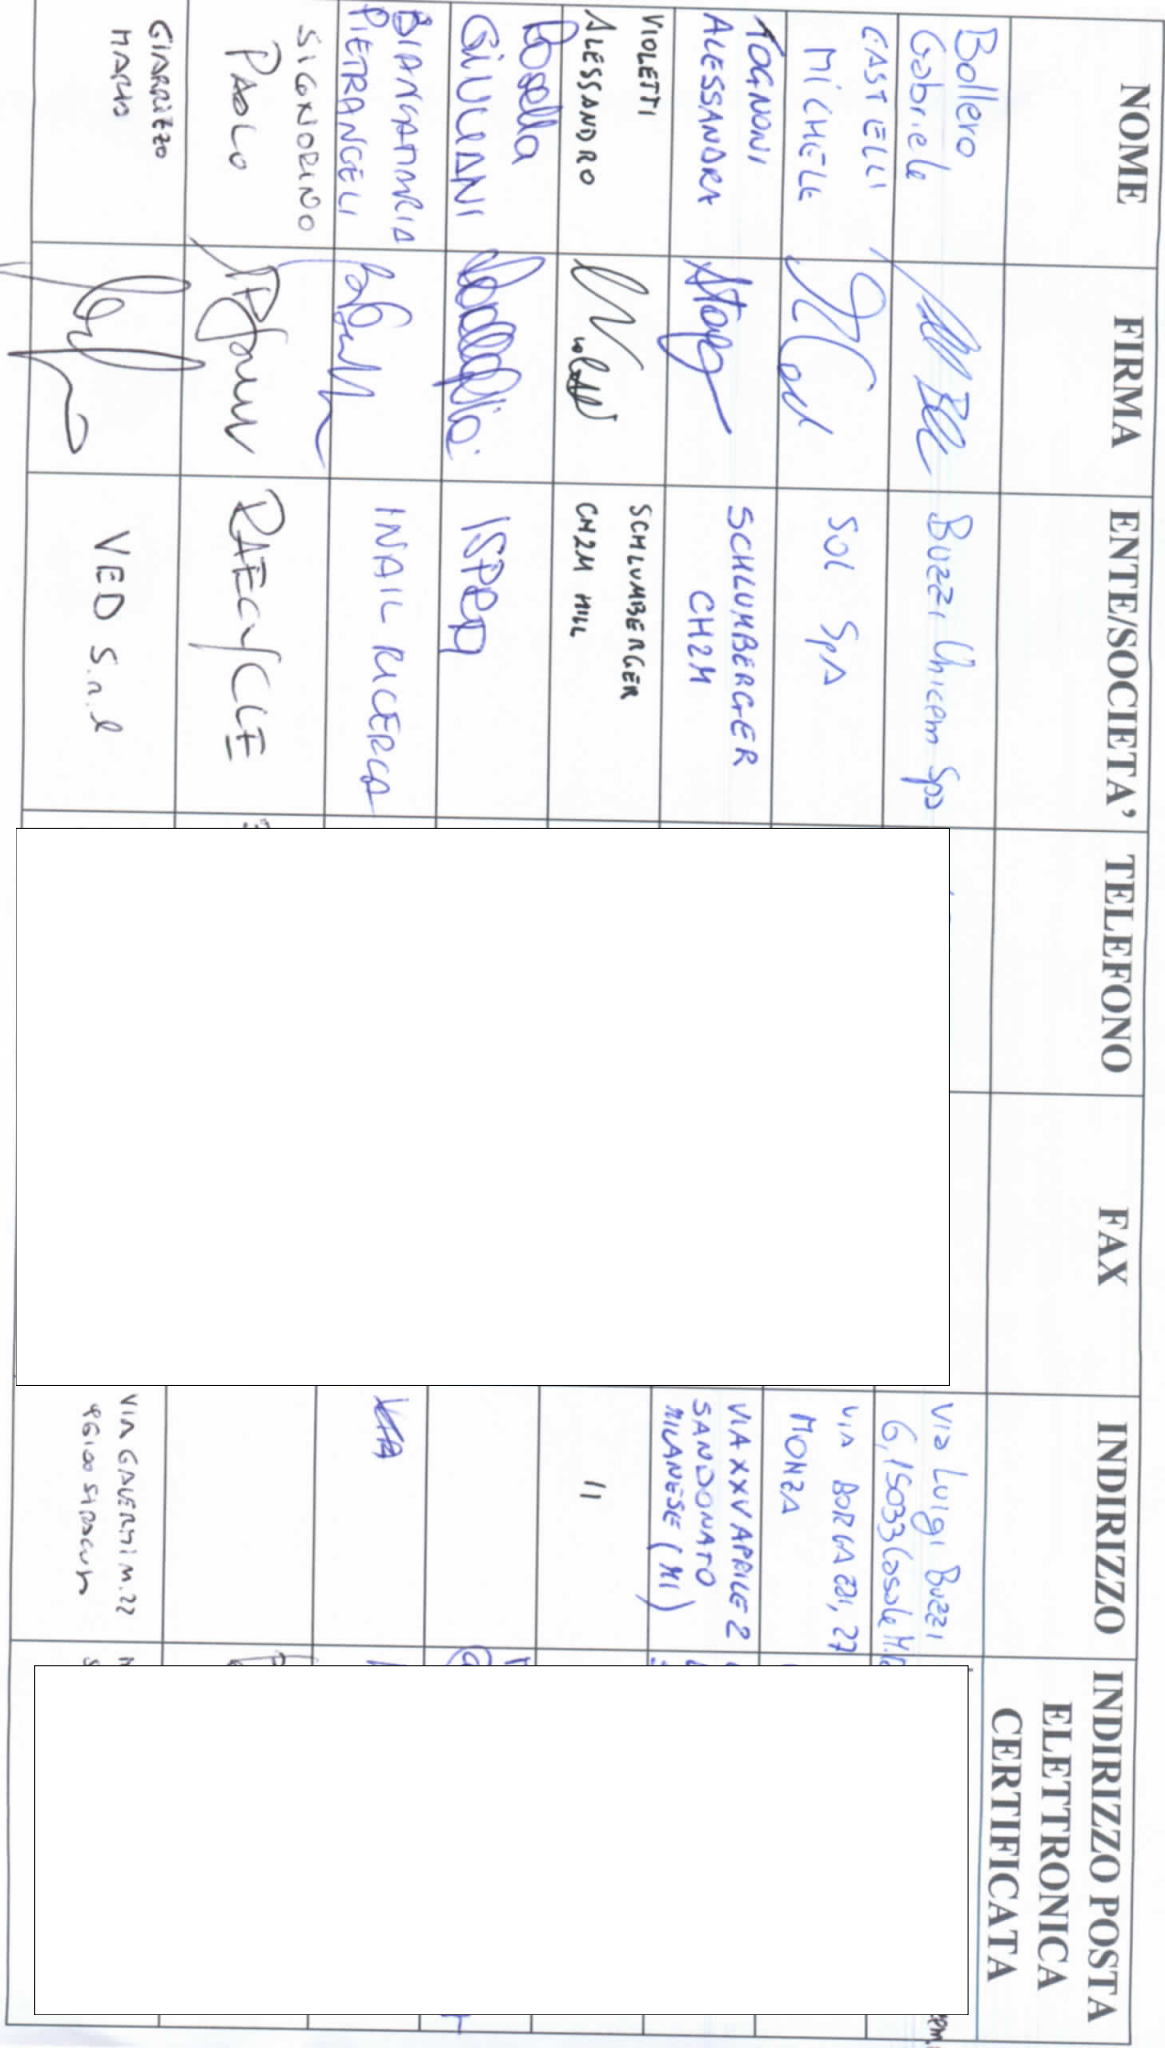 NOME FIRMA ENTE/SOCIETA' TELEFONO FAX INDIRIZZO INDIRIZZO POSTA
ELETTRONICA
CERTIFICATA
Bollero
Gabriele
Buzzi Unicem Spa
Via Luigi Buzzi
6, 15033 Casale M.
CASTELLI
MICHELE
SOL SpA
VIA BORGAZZI, 27
MONZA
TOGNONI
ALESSANDRA
SCHLUMBERGER
CH2M
VIA XXV APRILE 2
SAN DONATO
MILANESE (MI)
VIOLETTI
ALESSANDRO
SCHLUMBERGER
CH2M HILL
11
Rosella
GIULIANI
ISPRA
BIANCAMARIA
PIETRANGELI
INAIL RICERCA
SIGNORINO
PAOLO
RAECYCLE
GIARRIZZO
MARIO
VED S.r.l
VIA GALERMI N. 22
96100 SIRACUSA